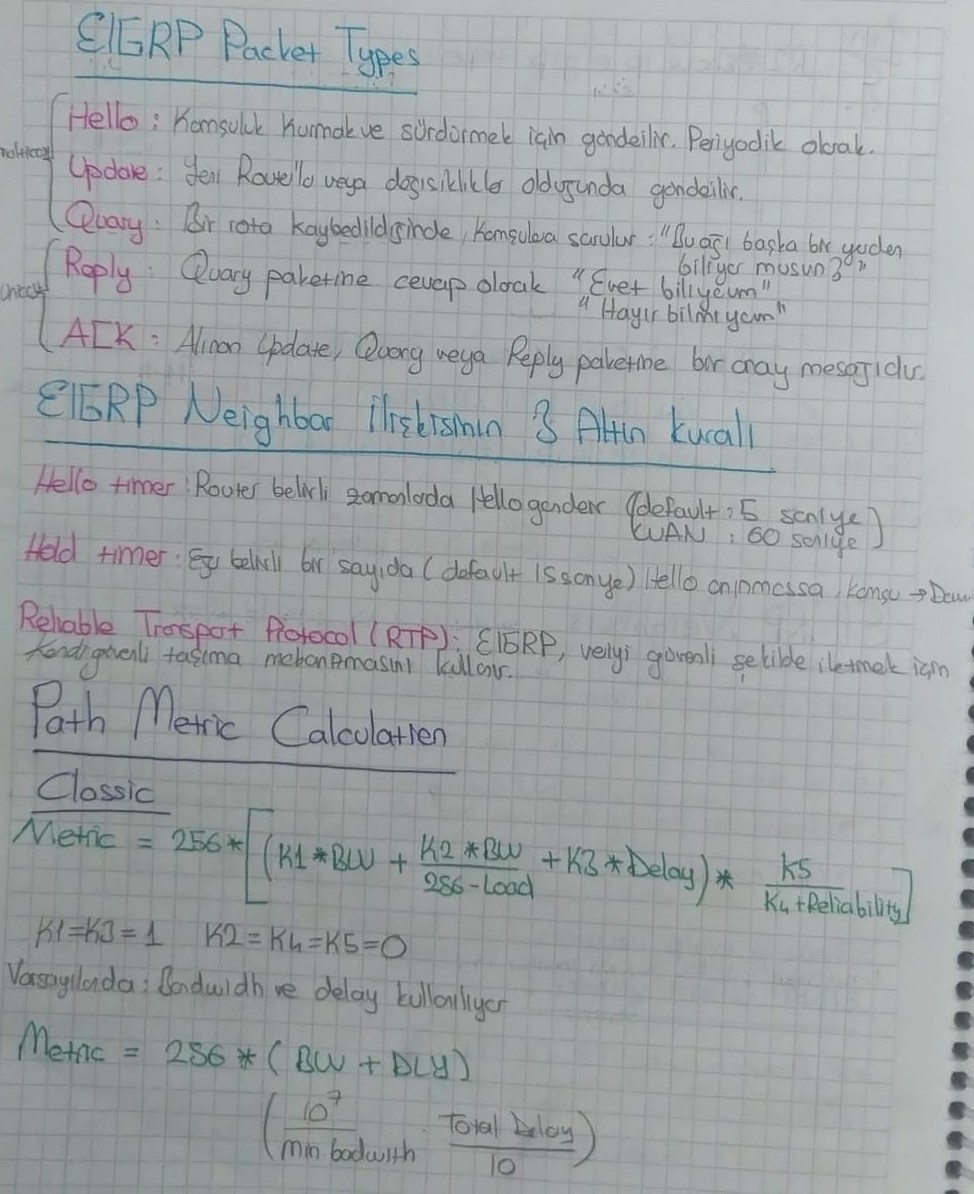 EIGRP Packet Types
Hello : Komşuluk kurmak ve sürdürmek için göndeilir. Periyodik olarak.
multicast
Update : Yeni Route'la veya değişiklikler olduğunda gondeilir.
Quary : Bir rota kaybedildiğinde, komşulara sorulur : "Bu ağı başka bir yerden
biliyor musun?"
Reply : Quary paketine cevap olarak "Evet biliyorum"
Unicast
"Hayır bilmiyorum"
ACK : Alınan Update, Quary veya Reply paketine bir onay mesajıdır.
EIGRP Neighbor ilişkisinin 3 Altın kuralı
Hello timer : Router belirli zamanlarda Hello gönderir (default : 5 saniye
WAN : 60 saniye)
Hold timer : Eğer belirli bir sayıda (default 15 sanye) Hello alınmazsa, komşu → Down
Reliable Transport Protocol (RTP) : EIGRP, veriyi güvenli şekilde iletmek için
kendi güvenli taşıma mekanizmasını kullanır.
Path Metric Calculation
Classic
Metric = 256 * [(K1 * BW + K2 * BW / 256 - Load + K3 * Delay) * K5 / K4 + Reliability]
K1=K3=1 K2=K4=K5=0
Varsayılanda : Bandwidh ve delay kullanılıyor
Metric = 256 * ( BW + DLY )
( 10⁷ / min. bodwith . Total Delay / 10 )